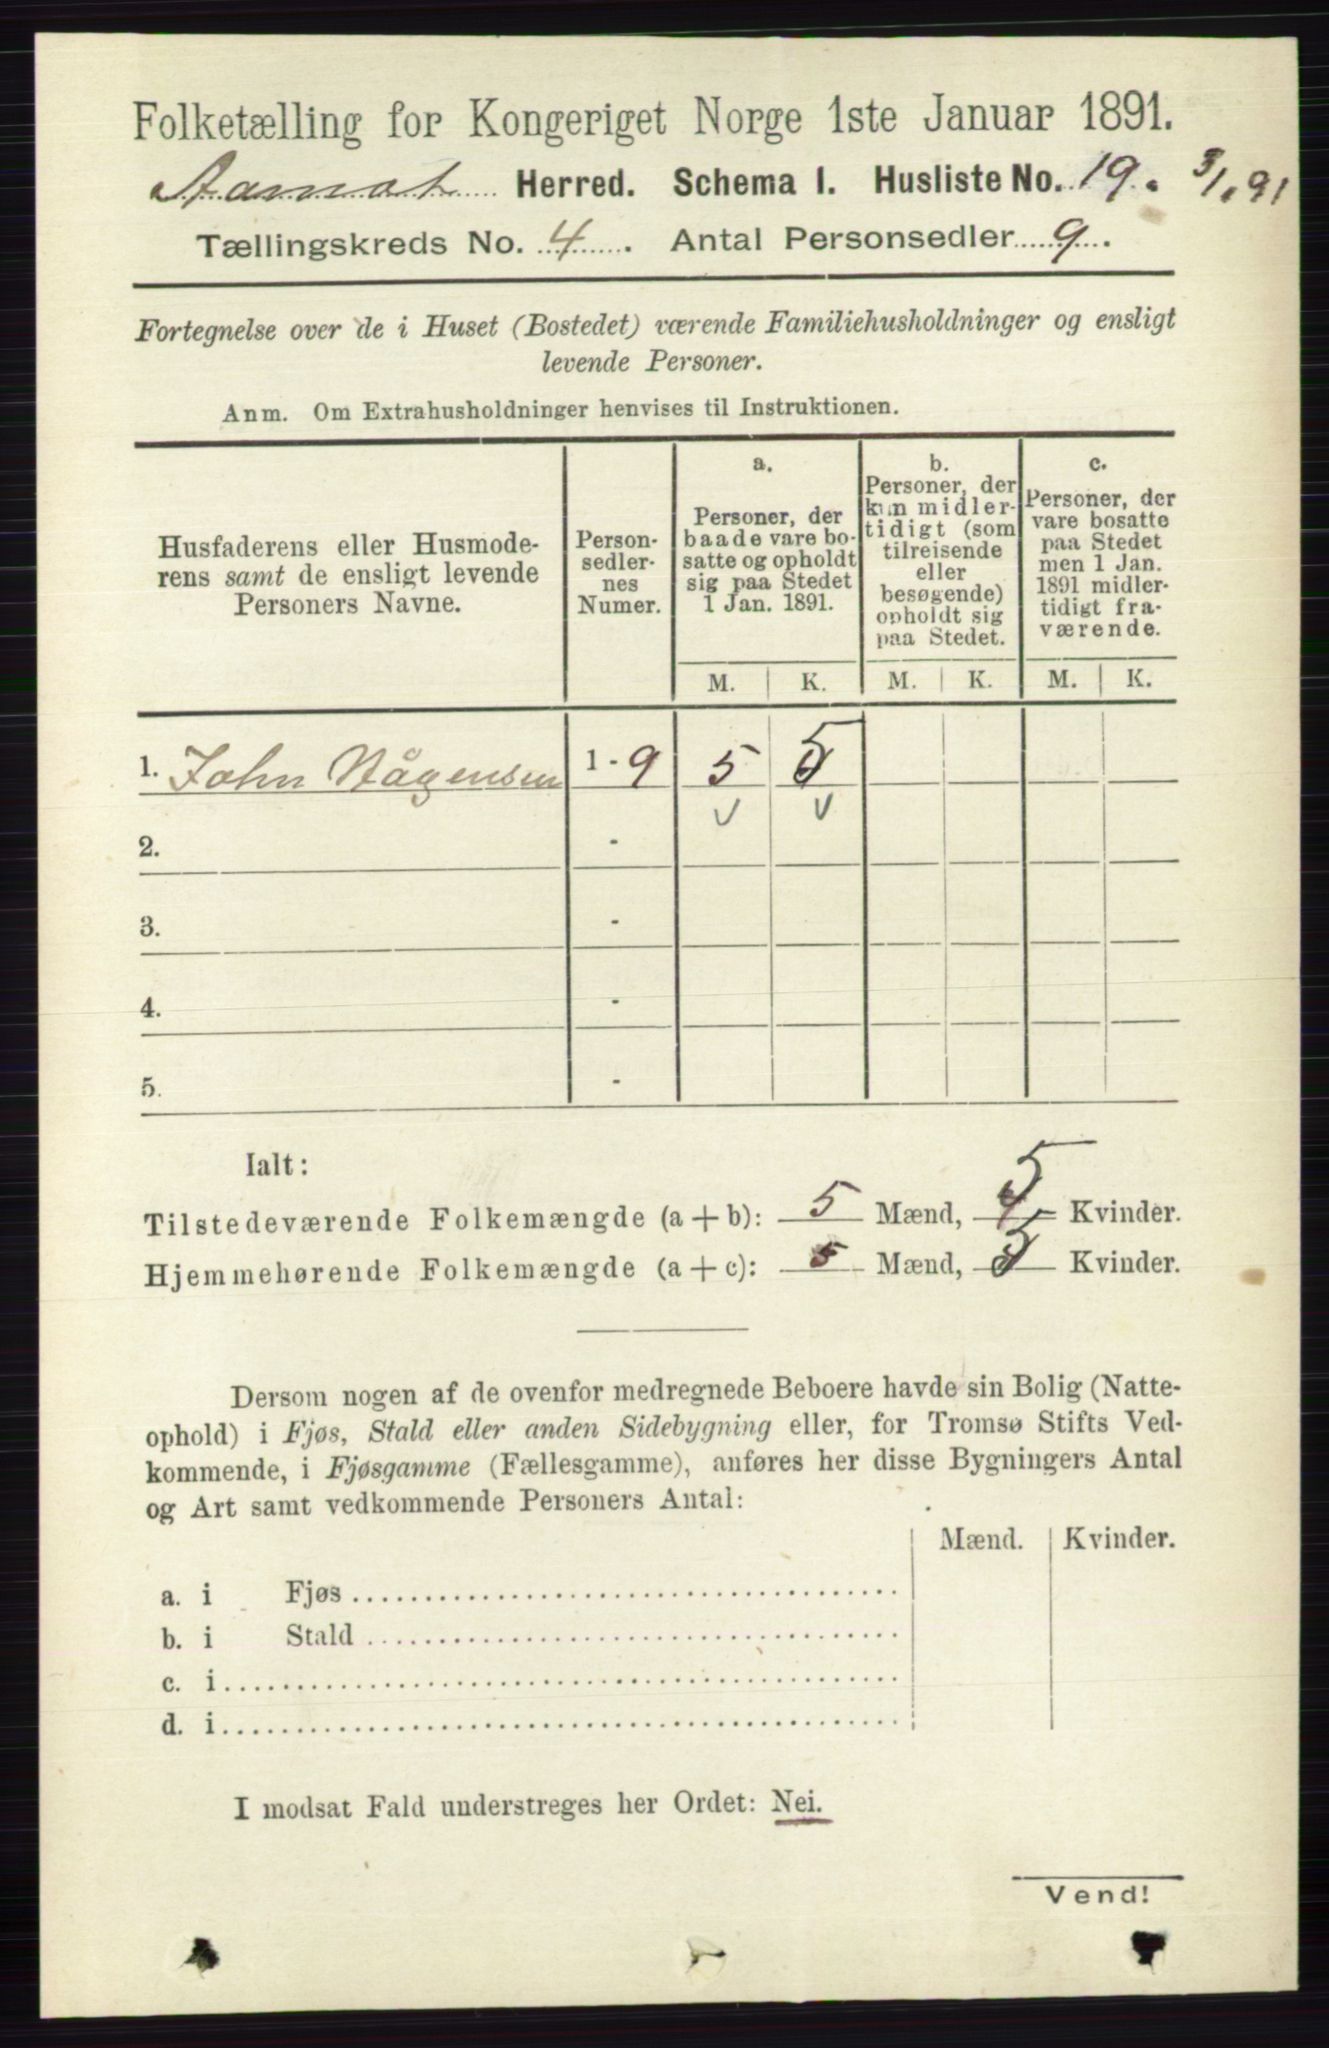 Folketælling for Kongeriget Norge 1ste Januar 1891.
Aamot Herred. Schema 1. Husliste No. 19. 3/1.91
Tællingskreds No. 4. Antal Personsedler 9.
Fortegnelse over de i Huset (Bostedet) værende Familiehusholdninger og ensligt
levende Personer.
Anm. Om Extrahusholdninger henvises til Instruktionen.
Husfaderens eller Husmode-
rens samt de ensligt levende
Personers Navne.
Person-
sedler-
nes
Numer.
a.
Personer, der
baade vare bo-
satte og opholdt
sig paa Stedet
1 Jan. 1891.
b.
Personer, der
kun midler-
tidigt (som
tilreisende
eller
besøgende)
opholdt sig
paa Stedet.
c.
Personer, der
vare bosatte
paa Stedet
men 1 Jan.
1891 midler-
tidigt fra-
værende.
M. K. M. K. M. K.
1. John Hågensen 1 - 9 5 5
2. -
3. -
4. -
5. -
Ialt:
Tilstedeværende Folkemængde (a + b): 5 Mænd, 5 Kvinder.
Hjemmehørende Folkemængde (a + c): 5 Mænd, 5 Kvinder.
Dersom nogen af de ovenfor medregnede Beboere havde sin Bolig (Natte-
ophold) i Fjøs, Stald eller anden Sidebygning eller, for Tromsø Stifts Ved-
kommende, i Fjøsgamme (Fællesgamme), anføres her disse Bygningers Antal
og Art samt vedkommende Personers Antal:
Mænd. Kvinder.
a. i Fjøs
b. i Stald
c. i
d. i
I modsat Fald understreges her Ordet: Nei.
Vend!